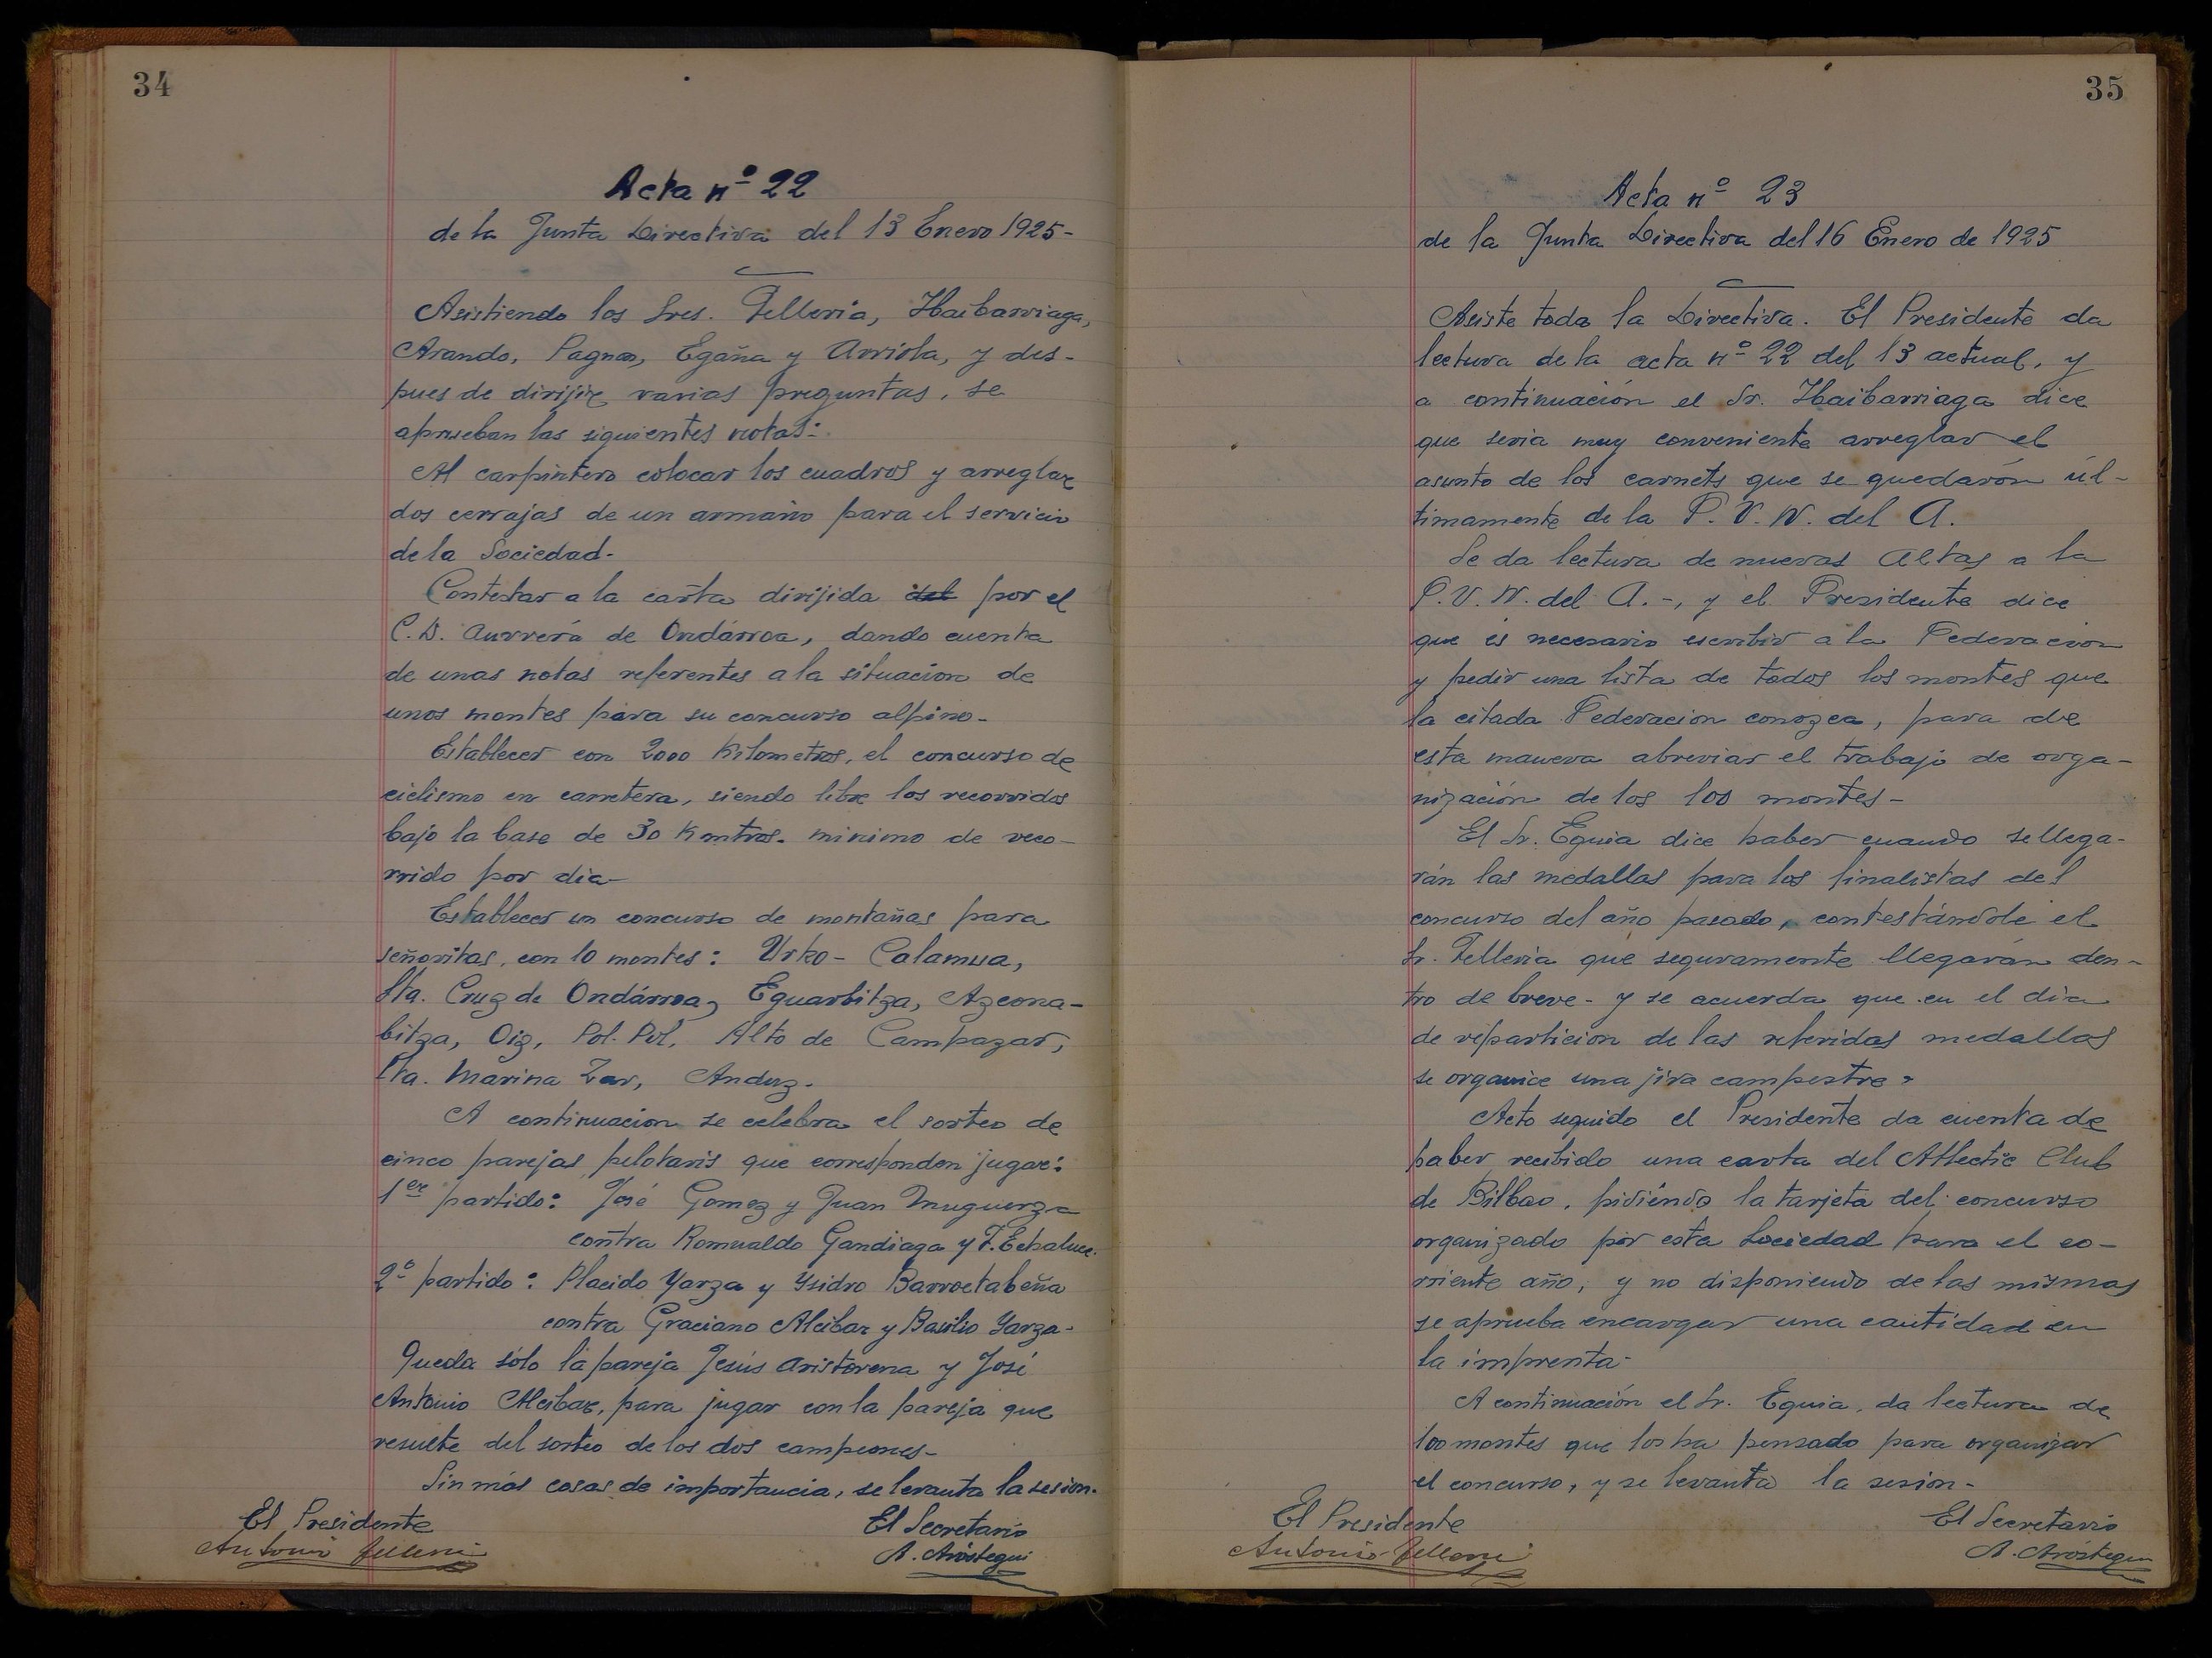 34
Acta nº 22
de la Junta Directiva del 13 Enero 1925-
Asistiendo los Sres. Telleria, Ibaibarriaga,
Arando, Pagnos, Egaña y Arriola, y des-
pues de dirijir varias preguntas, se
aprueban las siguientes notas:
Al carpintero colocar los cuadros y arreglar
dos cerrajas de un armario para el servicio
de la Sociedad-
Contestar a la carta dirijida del por el
C.D. Aurrerá de Ondárroa, dando cuenta
de unas notas referentes a la situacion de
unos montes para su concurso alpino-
Establecer con 2000 Kilometros, el concurso de
ciclismo en carretera, siendo libre los recorridos
bajo la base de 30 Kmtros. minimo de reco-
rrido por dia-
Establecer un concurso de montañas para
señoritas, con 10 montes: Urko- Calamua,
Sta. Cruz de Ondárroa, Eguarbitza, Azcona-
bitza, Oiz, Pol-Pol, Alto de Campazar,
Sta. Marina Zar, Anduz.
A continuacion se celebra el sorteo de
cinco parejas pelotaris que corresponden jugar:
1er partido: José Gomez y Juan Muguerza
contra Romualdo Gandiaga y F. Echaluce.
2º partido: Placido Yarza y Ysidro Barroetabeña
contra Graciano Alcibar y Basilio Yarza-
Queda sólo la pareja Jesús Aristorena y José
Antonio Alcibar, para jugar con la pareja que
resulte del sorteo de los dos campeones-
Sin más cosas de importancia, se levanta la sesion.
El Presidente
Antonio Telleria
El Secretario
A. Aróstegui
35
Acta nº 23
de la Junta Directiva del 16 Enero de 1925
Asiste toda la Directiva. El Presidente da
lectura de la acta nº 22 del 13 actual, y
a continuación el Sr. Ibaibarriaga dice
que seria muy conveniente arreglar el
asunto de los carnets que se quedarón úl-
timamente de la F.V.N. del A.
Se da lectura de nuevas Altas a la
F.V.N. del A.-, y el Presidente dice
que es necesario escribir a la Federacion
y pedir una lista de todos los montes que
la citada Federacion conozca, para de
esta manera abreviar el trabajo de orga-
nización de los 100 montes-
El Sr. Eguia dice haber cuando se llega-
rán las medallas para los finalistas del
concurso del año pasado, contestándole el
Sr. Telleria que seguramente llegarán den-
tro de breve- y se acuerda que en el dia
de reparticion de las referidas medallas
se organice una jira campestre-
Acto seguido el Presidente da cuenta de
haber recibido una carta del Athlectic Club
de Bilbao, pidiéndo la tarjeta del concurso
organizado por esta Sociedad para el co-
rriente año, y no disponiendo de las mismas
se aprueba encargar una cantidad en
la imprenta-
A continuación el Sr. Eguia, da lectura de
100 montes que los ha pensado para organizar
el concurso, y se levanta la sesion-
El Presidente
Antonio Telleria
El Secretario
A. Aróstegui